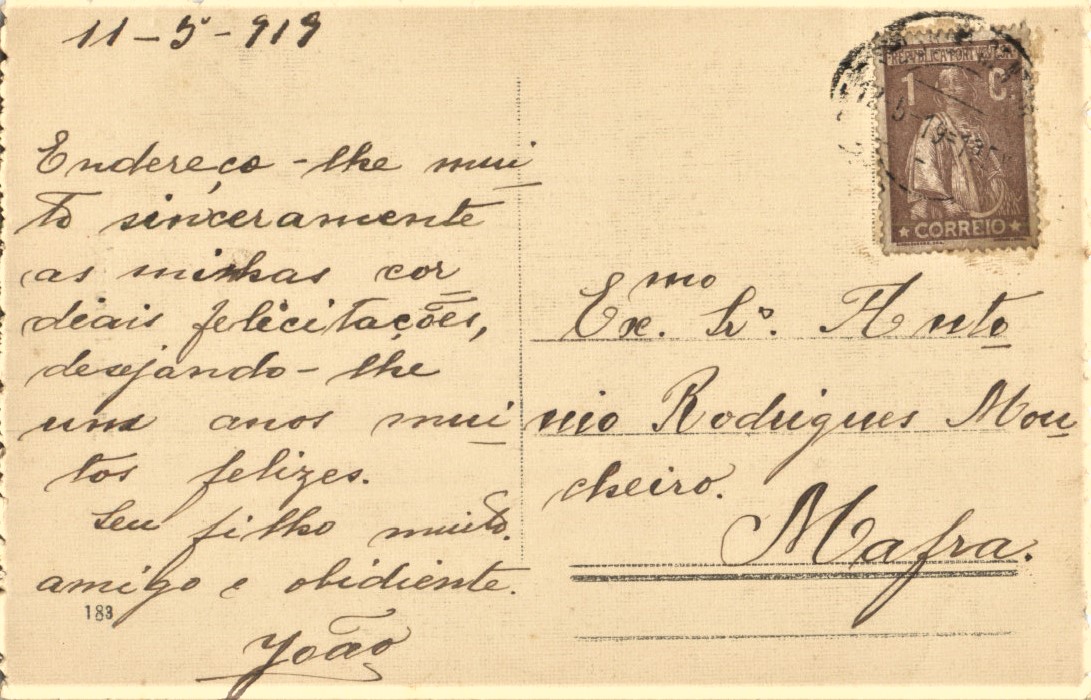 11-5-919
Endereço-lhe mui
to sinceramente
as minhas cor
deais felicitações,
desejando-lhe
uns anos mui
tos felizes.
Seu filho muito.
amigo e obidiente.
João
183
REPUBLICA PORTUGUESA
1 C.
CORREIO
5-19-13
Ex.mo Sr. Anto
nio Rodrigues Mou
cheiro.
Mafra.